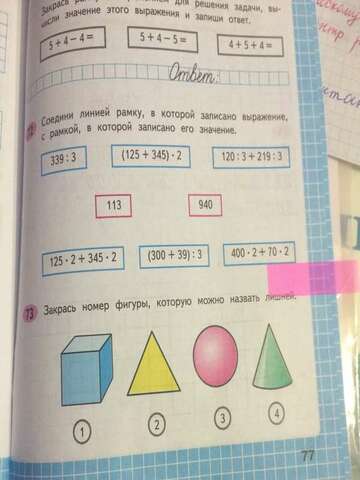 для решения задачи, вы-
числи значение этого выражения и запиши ответ.
5 + 4 − 4 =
5 + 4 − 5 =
4 + 5 + 4 =
Ответ:
Соедини линией рамку, в которой записано выражение,
с рамкой, в которой записано его значение.
339 : 3
(125 + 345) · 2
120 : 3 + 219 : 3
113
940
125 · 2 + 345 · 2
(300 + 39) : 3
400 · 2 + 70 · 2
73 Закрась номер фигуры, которую можно назвать лишней.
1
2
3
4
77